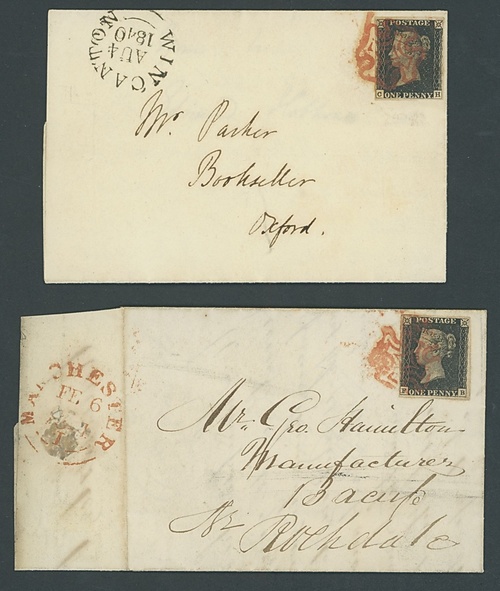 WINCANTON
AU 4
1840
POSTAGE
C H
ONE PENNY
Mr. Parker
Bookseller
Oxford.
MANCHESTER
FE 6
POSTAGE
B
ONE PENNY
Mr. Geo. Hamilton
Manufacturer
Bacup
Nr
Rochdale